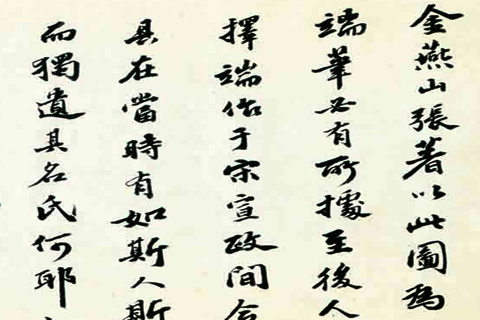 金燕山張著以此圖為
端筆必有所據至後人
擇端作于宋宣政間
具在當時有如斯人斯
而獨遺其名氏何耶